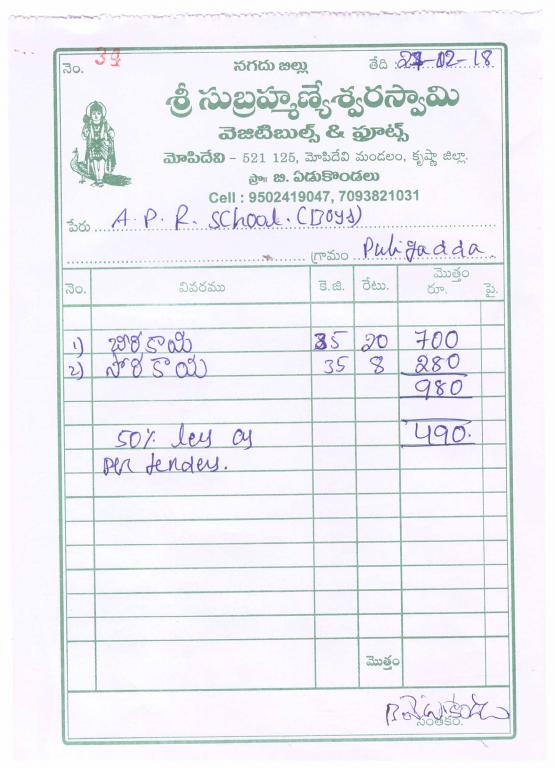 నెం. 34 నగదు బిల్లు తేది 27-02-18
శ్రీ సుబ్రహ్మణ్యేశ్వరస్వామి
వెజిటిబుల్స్ & ఫ్రూట్స్
మోపిదేవి - 521 125, మోపిదేవి మండలం, కృష్ణా జిల్లా.
ప్రొః బి. ఏడుకొండలు
Cell : 9502419047, 7093821031
పేరు A. P. R. School. (Boys)
గ్రామం Puligadda
నెం. వివరము కె.జి. రేటు. మొత్తం రూ. పై.
1) బీరకాయ 35 20 700
2) సోరకాయ 35 8 280
980
50% less as 490.
per tenders.
మొత్తం
సంతకం.